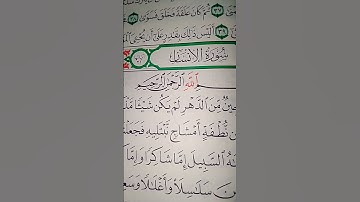 ﴿٣٧﴾ ثُمَّ كَانَ عَلَقَةً فَخَلَقَ فَسَوَّىٰ
﴿٣٩﴾ أَلَيْسَ ذَٰلِكَ بِقَٰدِرٍ عَلَىٰٓ أَن يُحْـِۧىَ
سُورَةُ الإِنسَان
ٱللَّهِ ٱلرَّحْمَٰنِ ٱلرَّحِيمِ
حِينٌ مِّنَ ٱلدَّهْرِ لَمْ يَكُن شَيْـًٔا
نُّطْفَةٍ أَمْشَاجٍ نَّبْتَلِيهِ فَجَعَلْنَ
ٱلسَّبِيلَ إِمَّا شَاكِرًا وَإِمَّا
سَلَٰسِلَا۟ وَأَغْلَٰلًا وَسَعِ